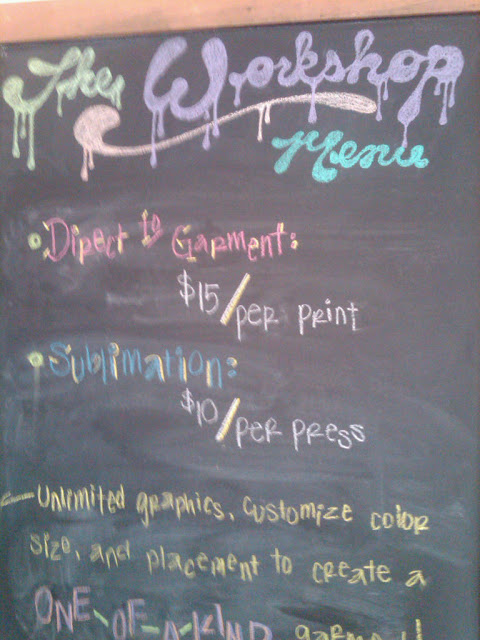 The Workshop
Menu
Direct to Garment:
$15/per print
Sublimation:
$10/per press
Unlimited graphics, customize color
size, and placement to create a
ONE-OF-A-KIND